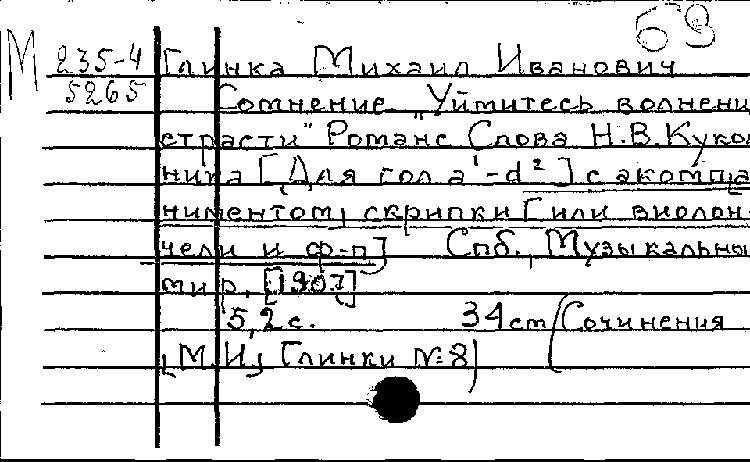 69
М 235-4 Глинка Михаил Иванович
5265
Сомнение „Уймитесь волнени
страсти" Романс Слова Н.В.Куко
ника [Для гол a¹-d²] с акомпа
ниментом скрипки [или виолон
чели и ф-п] Спб., Музыкальны
мир, [1907]
5,2 с. 34 см (Сочинения
[М.И.] Глинки №8)